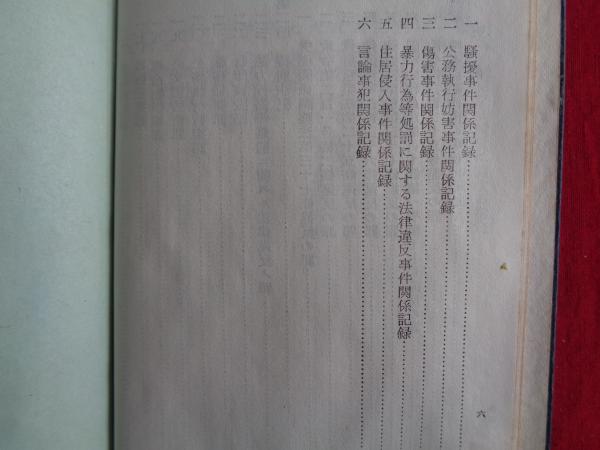 一 騒擾事件関係記録
二 公務執行妨害事件関係記録
三 傷害事件関係記録
四 暴力行為等処罰に関する法律違反事件関係記録
五 住居侵入事件関係記録
六 言論事犯関係記録
六